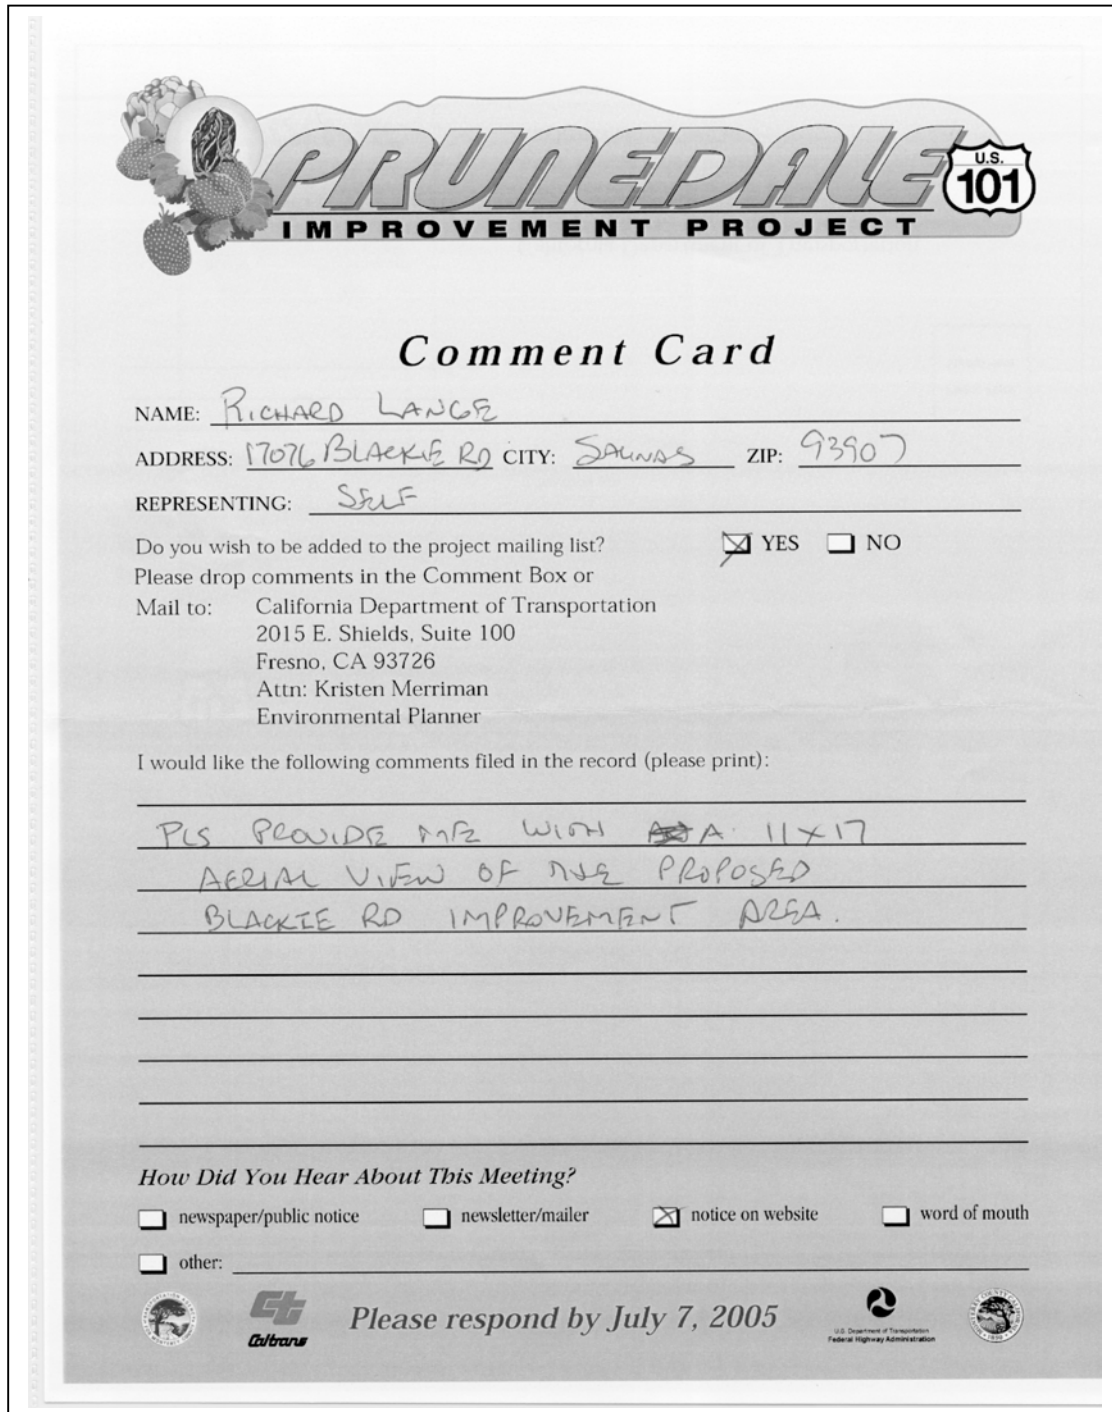 PRUNEDALE
U.S.
101
IMPROVEMENT PROJECT
Comment Card
NAME: RICHARD LANGE
ADDRESS: 17076 BLACKIE RD CITY: SALINAS ZIP: 93907
REPRESENTING: SELF
Do you wish to be added to the project mailing list? YES NO
Please drop comments in the Comment Box or
Mail to: California Department of Transportation
2015 E. Shields, Suite 100
Fresno, CA 93726
Attn: Kristen Merriman
Environmental Planner
I would like the following comments filed in the record (please print):
PLS PROVIDE ME WITH A 11X17
AERIAL VIEW OF THE PROPOSED
BLACKIE RD IMPROVEMENT AREA.
How Did You Hear About This Meeting?
newspaper/public notice newsletter/mailer notice on website word of mouth
other:
Please respond by July 7, 2005
Caltrans
U.S. Department of Transportation
Federal Highway Administration